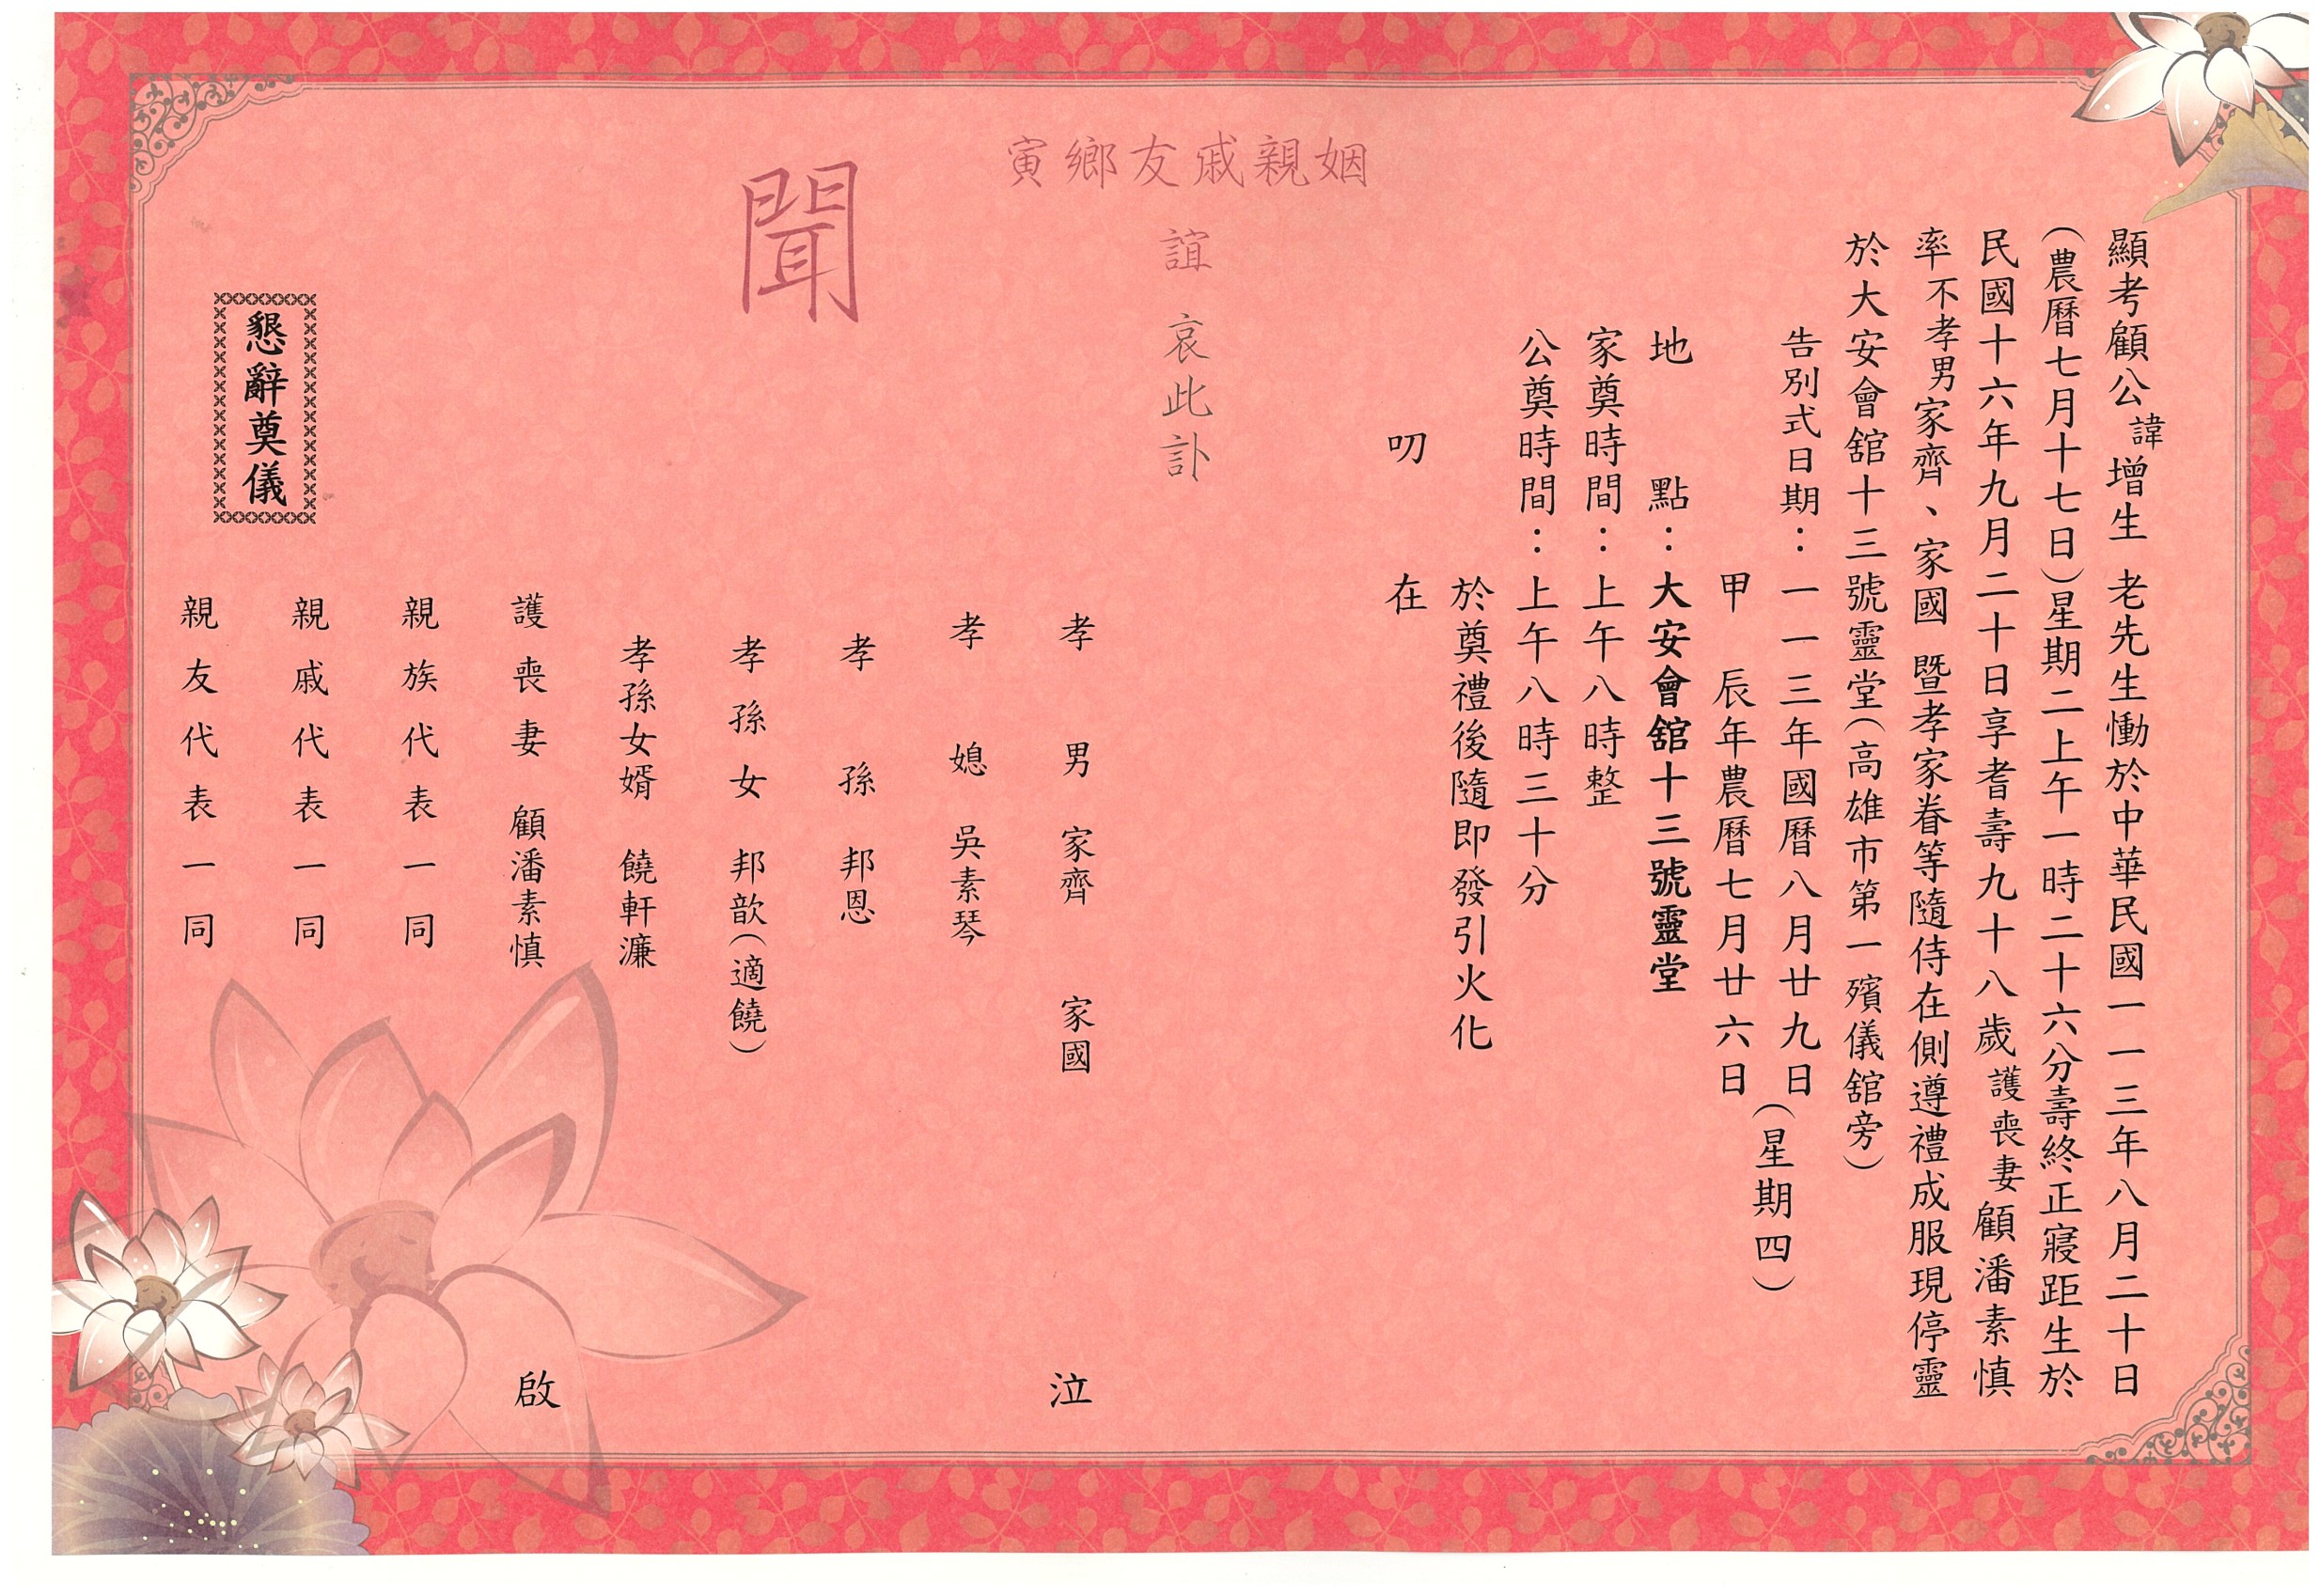 顯考顧公諱增生 老先生慟於中華民國一一三年八月二十日
(農曆七月十七日)星期二上午一時二十六分壽終正寢距生於
民國十六年九月二十日享耆壽九十八歲護喪妻顧潘素慎
率不孝男家齊、家國 暨孝家眷等隨侍在側遵禮成服現停靈
於大安會舘十三號靈堂(高雄市第一殯儀舘旁)
告別式日期：一一三年國曆八月廿九日
甲 辰年農曆七月廿六日
(星期四)
地 點：大安會舘十三號靈堂
家奠時間：上午八時整
公奠時間：上午八時三十分
於奠禮後隨即發引火化
叨 在
寅鄉友戚親姻
誼 哀此訃
聞
孝 男 家齊 家國
孝 媳 吳素琴
孝 孫 邦恩
孝孫女 邦歆(適饒)
孝孫女婿 饒軒濂
泣
護喪妻 顧潘素慎
親族代表一同
親戚代表一同
親友代表一同
啟
懇辭奠儀